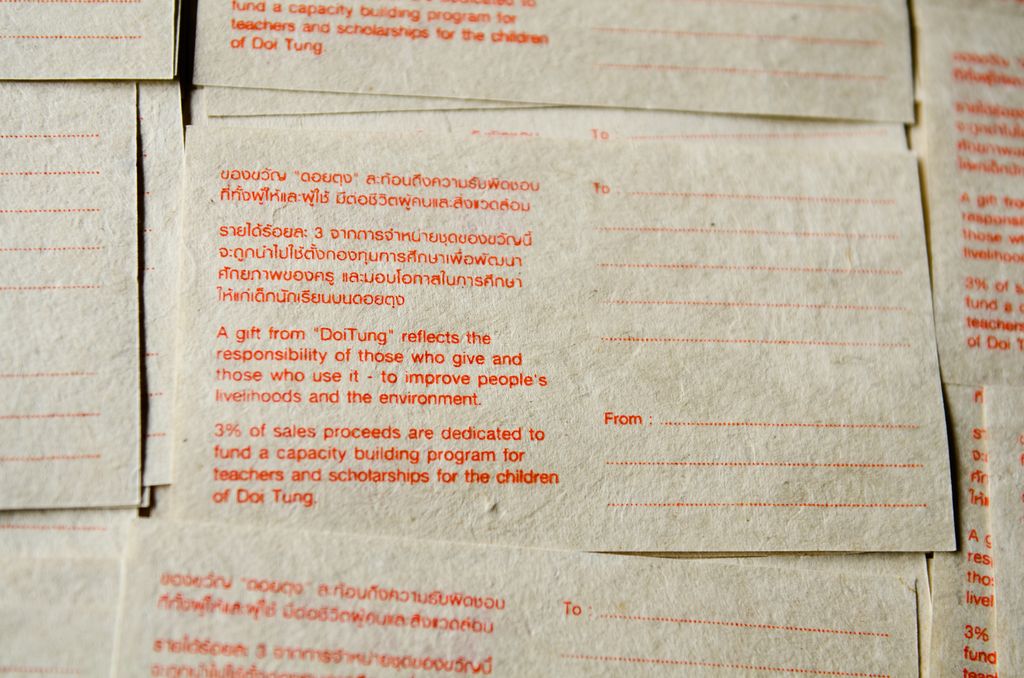 fund a capacity building program for
teachers and scholarships for the children
of Doi Tung.
To :
ของขวัญ "ดอยตุง" สะท้อนถึงความรับผิดชอบ
ที่ทั้งผู้ให้และผู้ใช้ มีต่อชีวิตผู้คนและสิ่งแวดล้อม
รายได้ร้อยละ 3 จากการจำหน่ายชุดของขวัญนี้
จะถูกนำไปใช้ตั้งกองทุนการศึกษาเพื่อพัฒนา
ศักยภาพของครู และมอบโอกาสในการศึกษา
ให้แก่เด็กนักเรียนบนดอยตุง
A gift from "DoiTung" reflects the
responsibility of those who give and
those who use it - to improve people's
livelihoods and the environment.
3% of sales proceeds are dedicated to
fund a capacity building program for
teachers and scholarships for the children
of Doi Tung.
To :
From :
A gift
responsi
those w
livelihood
3% of s
fund a
teachers
of Doi T
A g
res
tho
livel
3%
fund
ของขวัญ "ดอยตุง" สะท้อนถึงความรับผิดชอบ
ที่ทั้งผู้ให้และผู้ใช้ มีต่อชีวิตผู้คนและสิ่งแวดล้อม
รายได้ร้อยละ 3 จากการจำหน่ายชุดของขวัญนี้
To :